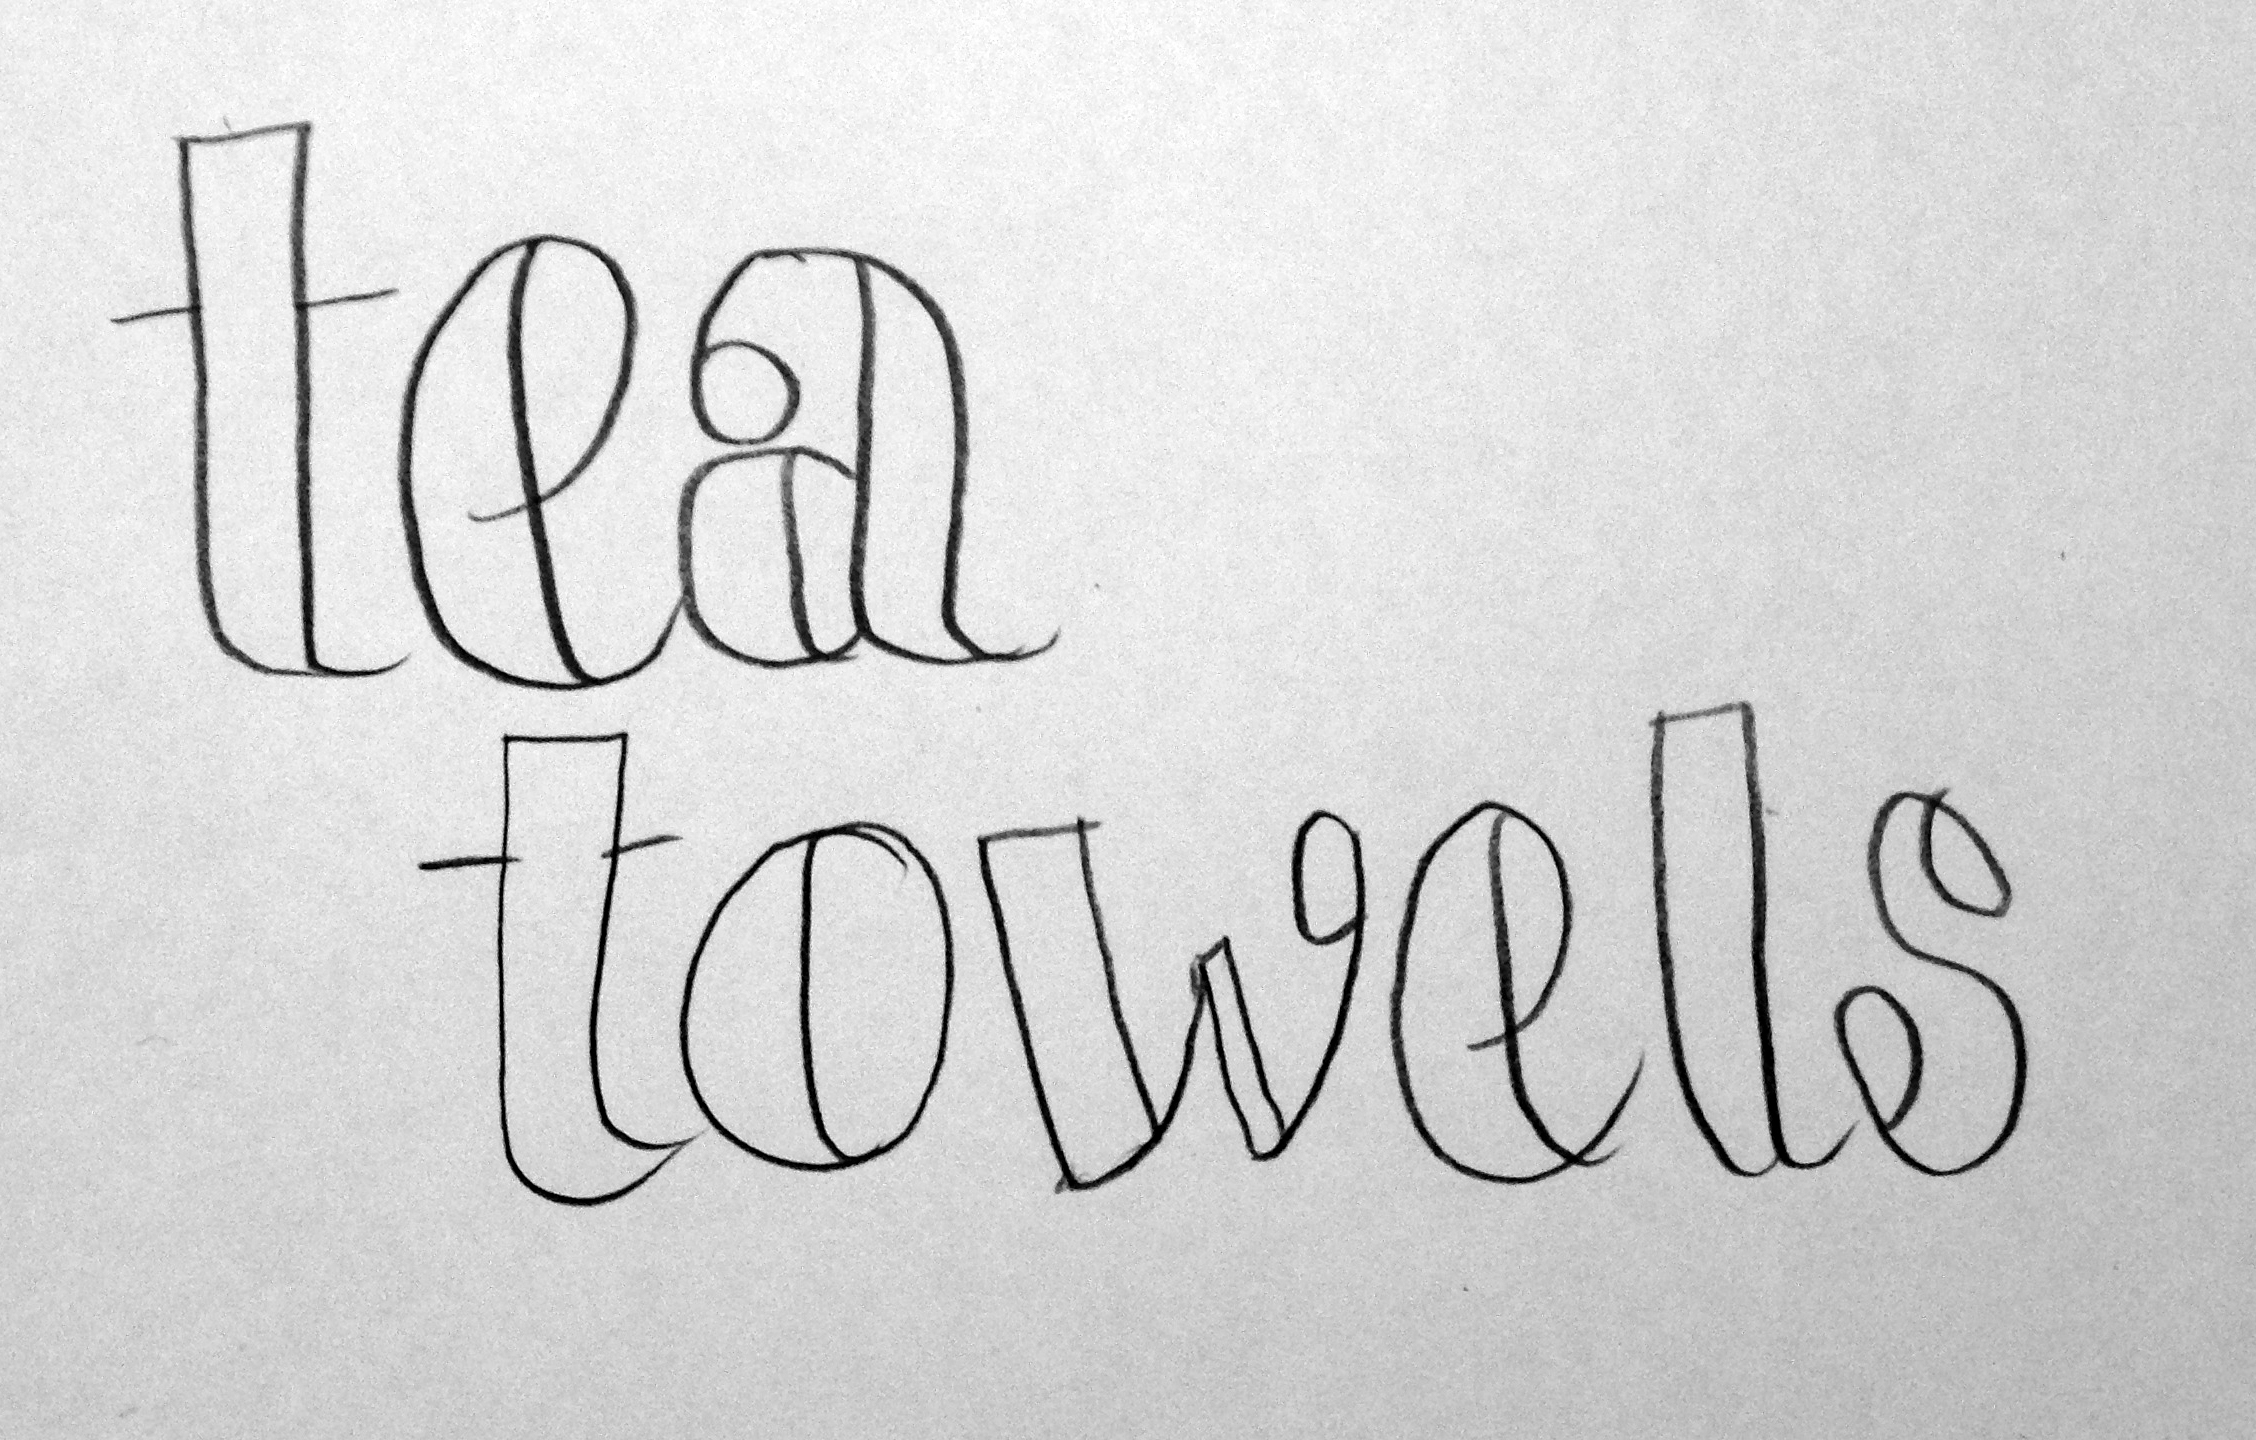 tea
towels